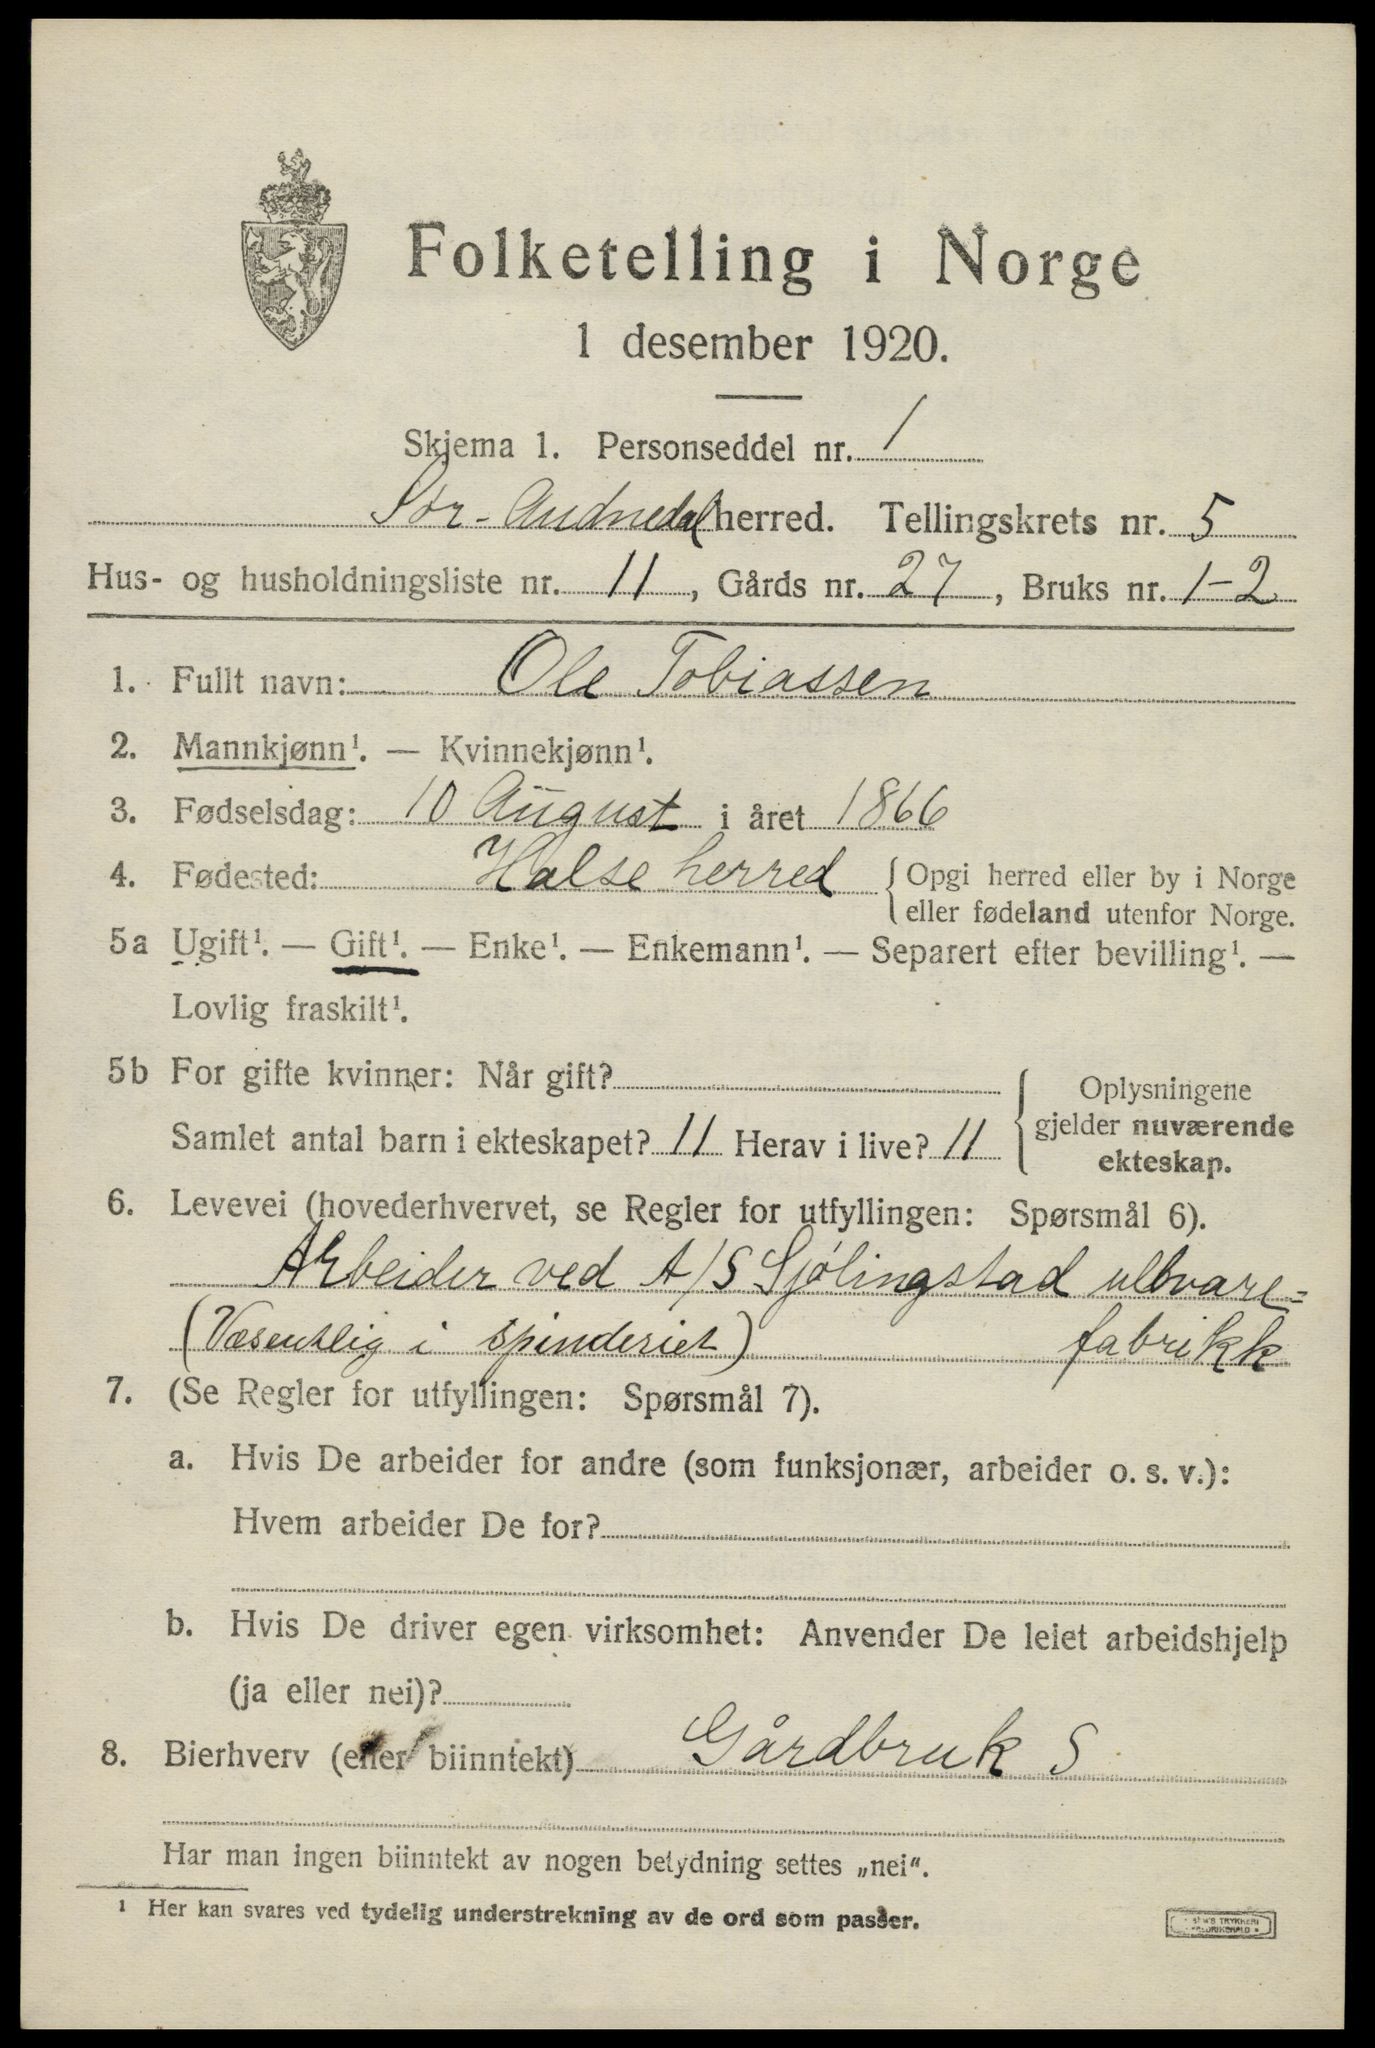 Folketelling i Norge
1 desember 1920.
Skjema 1. Personseddel nr. 1
Sør-Audnedal herred. Tellingskrets nr. 5
Hus- og husholdningsliste nr. 11, Gårds nr. 27, Bruks nr. 1-2
1. Fullt navn: Ole Tobiassen
2. Mannkjønn¹. — Kvinnekjønn¹.
3. Fødselsdag: 10 August i året 1866
4. Fødested: Halse herred { Opgi herred eller by i Norge
eller fødeland utenfor Norge.
5a Ugift¹. — Gift¹. — Enke¹. — Enkemann¹. — Separert efter bevilling¹. —
Lovlig fraskilt¹.
5b For gifte kvinner: Når gift?
Samlet antal barn i ekteskapet? 11 Herav i live? 11
Oplysningene
gjelder nuværende
ekteskap.
6. Levevei (hovederhvervet, se Regler for utfyllingen: Spørsmål 6).
Arbeider ved A/S Sjölingstad uldvare-
(Væsentlig i spinderiet) fabrikk
7. (Se Regler for utfyllingen: Spørsmål 7).
a. Hvis De arbeider for andre (som funksjonær, arbeider o. s. v.):
Hvem arbeider De for?
b. Hvis De driver egen virksomhet: Anvender De leiet arbeidshjelp
(ja eller nei)?
8. Bierhverv (eller biinntekt) Gårdbruk S
Har man ingen biinntekt av nogen betydning settes „nei".
¹ Her kan svares ved tydelig understrekning av de ord som passer.